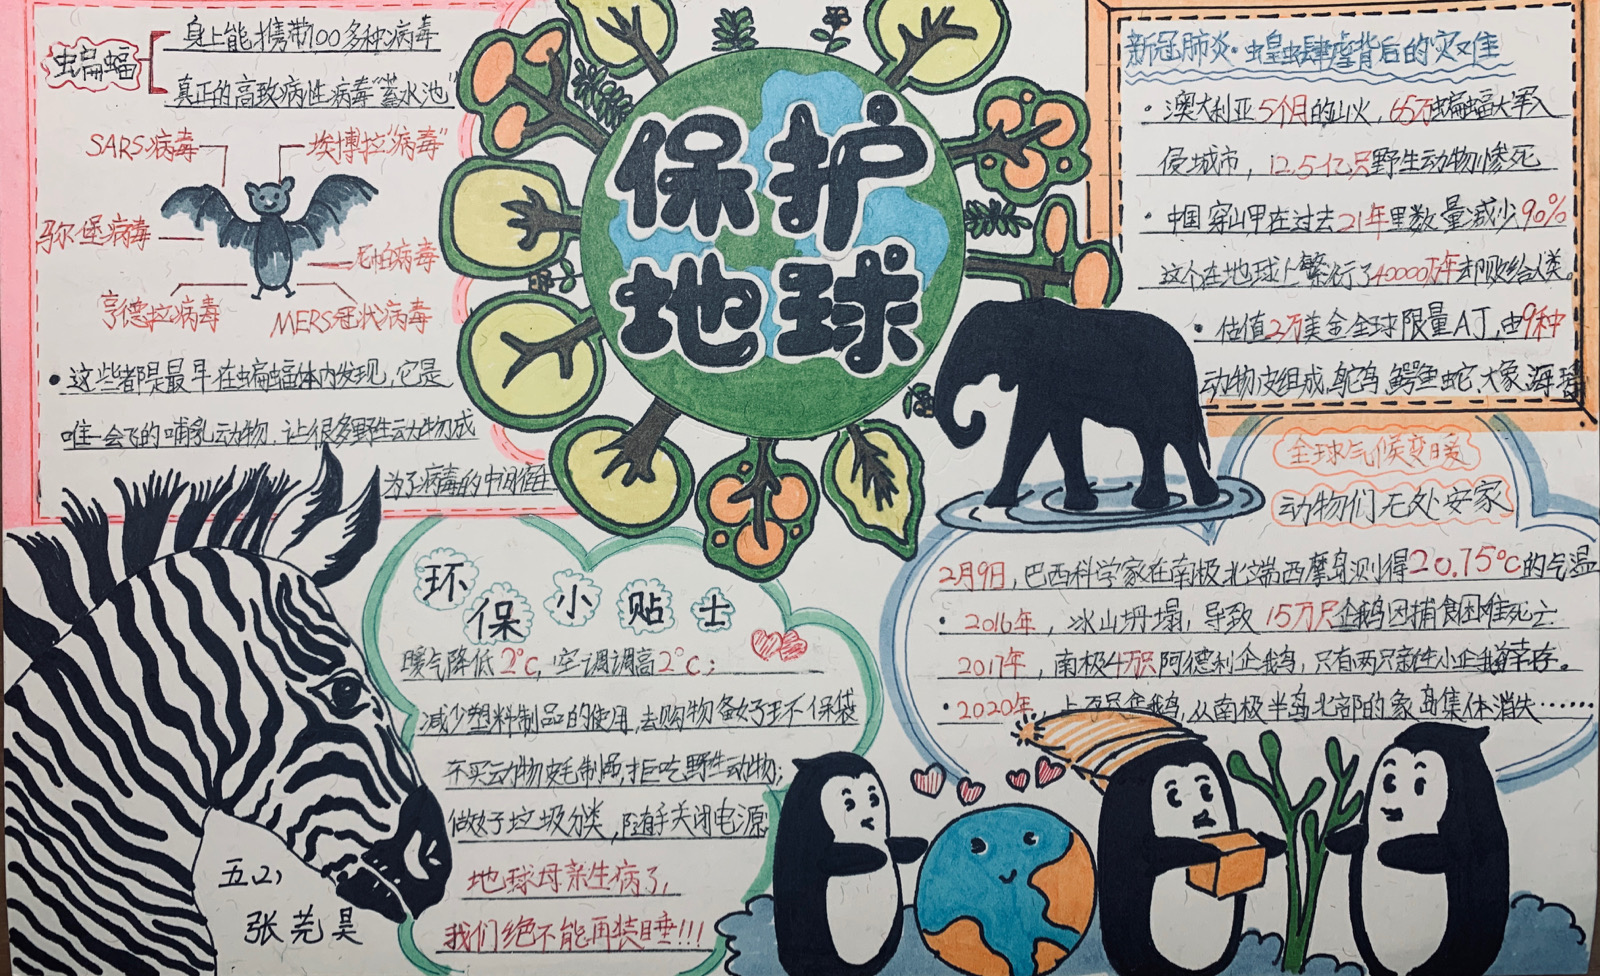 保护
地球
蝙蝠
身上能携带100多种病毒
真正的高致病性病毒“蓄水池”
SARS病毒
埃博拉“病毒”
马尔堡病毒
尼帕病毒
亨德拉病毒
MERS冠状病毒
•这些都是最早在蝙蝠体内发现,它是
唯一会飞的哺乳动物,让很多野生动物成
为了病毒的中间宿主
新冠肺炎·蝗虫肆虐背后的灾难
•澳大利亚5个月的山火,65万蝙蝠大军入
侵城市,12.5亿只野生动物惨死
•中国穿山甲在过去21年里数量减少90%
这个在地球上繁衍了4000万年却败给人类。
•估值2万美金全球限量AJ,由9种
动物皮组成,鸵鸟,鳄鱼蛇,大象,海
全球气候变暖
动物们无处安家
2月9日,巴西科学家在南极北端西摩岛测得20.75°C的气温
•2016年,冰山坍塌,导致15万只企鹅因捕食困难死亡
2017年,南极4万只阿德利企鹅,只有两只新生小企鹅幸存。
•2020年,上万只企鹅,从南极半岛北部的象岛集体消失……
环保小贴士
暖气降低2°C,空调调高2°C;
减少塑料制品的使用,去购物备好环保袋
不买动物皮毛制品,拒吃野生动物;
做好垃圾分类,随手关闭电源
地球母亲生病了,
我们绝不能再装睡!!!
五(2)
张芫昊